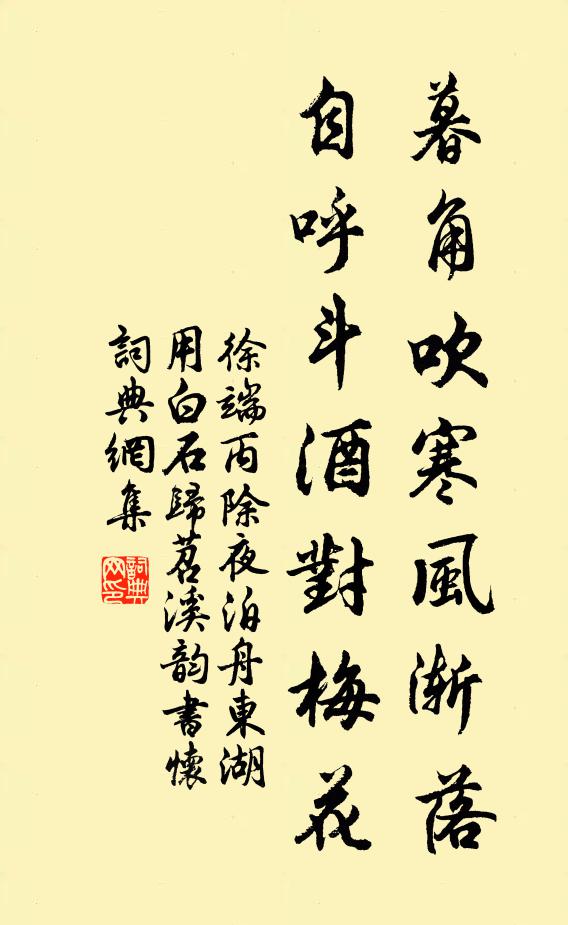 暮角吹寒風漸落
自呼斗酒對梅花
徐端丙除夜泊舟東湖
用白石歸苕溪韵書懷
詞典網集
詞典
网印